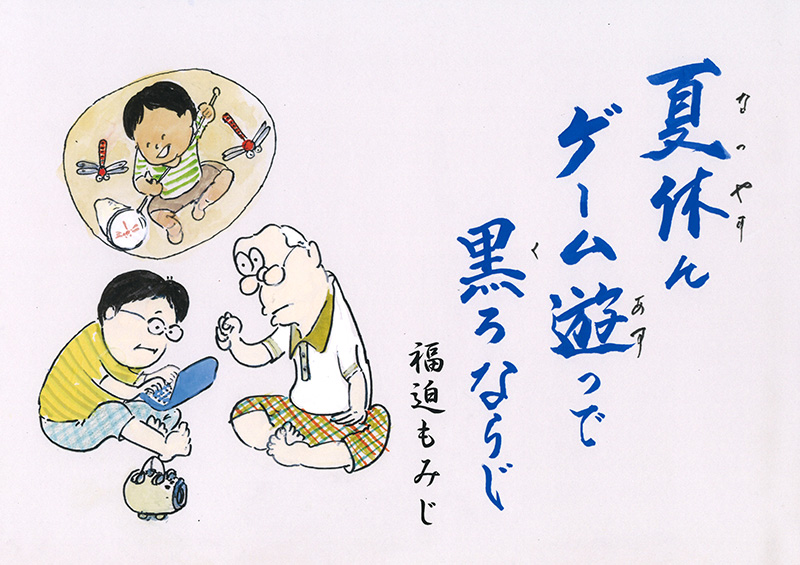 夏休ん
なつやす
ゲーム遊っで
あす
黒ろならじ
く
福迫もみじ